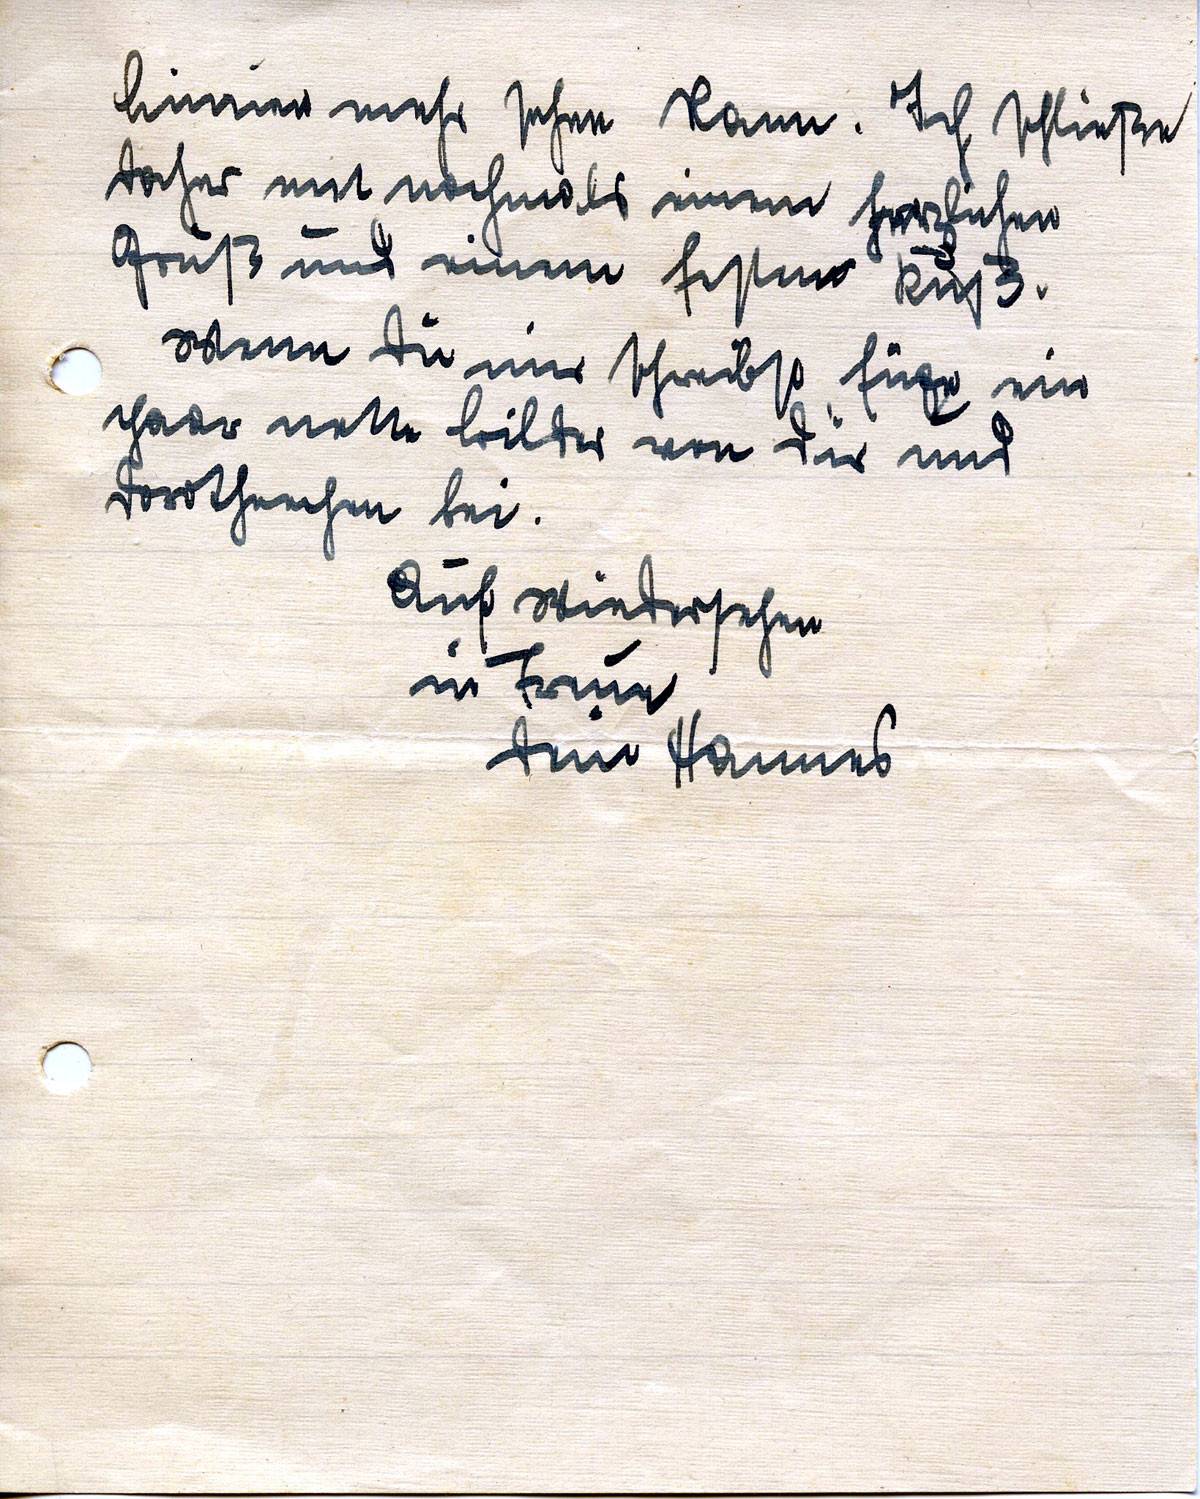 Linien mehr sehen kann. Ich schließe
daher mit nochmals einem herzlichen
Gruß und einem festen Kuß.
Wenn Du mir schreibst, füge ein
paar nette Bilder von Dir und
Dorotheechen bei.
Auf Wiedersehen
in Treue
Dein Hannes